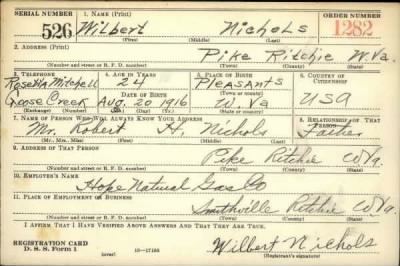 SERIAL NUMBER 1. NAME (Print) ORDER NUMBER
526 Wilbert Nichols 1282
(First) (Middle) (Last)
2. ADDRESS (Print)
Pike Ritchie W.Va.
(Number and street or R. F. D. number) (Town) (County) (State)
3. TELEPHONE 4. AGE IN YEARS 5. PLACE OF BIRTH 6. COUNTRY OF CITIZENSHIP
Rosella Mitchell 24 Pleasants
DATE OF BIRTH (Town or county)
Goose Creek Aug. 20 1916 W. Va USA
(Exchange) (Number) (Mo.) (Day) (Yr.) (State or country)
7. NAME OF PERSON WHO WILL ALWAYS KNOW YOUR ADDRESS 8. RELATIONSHIP OF THAT PERSON
Mr. Robert H. Nichols Father
(Mr., Mrs., Miss) (First) (Middle) (Last)
9. ADDRESS OF THAT PERSON
Pike Ritchie W Va.
(Number and street or R. F. D. number) (Town) (County) (State)
10. EMPLOYER'S NAME
Hope Natural Gas Co
11. PLACE OF EMPLOYMENT OR BUSINESS
Smithville Ritchie W Va.
(Number and street or R. F. D. number) (Town) (County) (State)
I AFFIRM THAT I HAVE VERIFIED ABOVE ANSWERS AND THAT THEY ARE TRUE.
REGISTRATION CARD
D. S. S. Form 1 (over) Wilbert Nichols